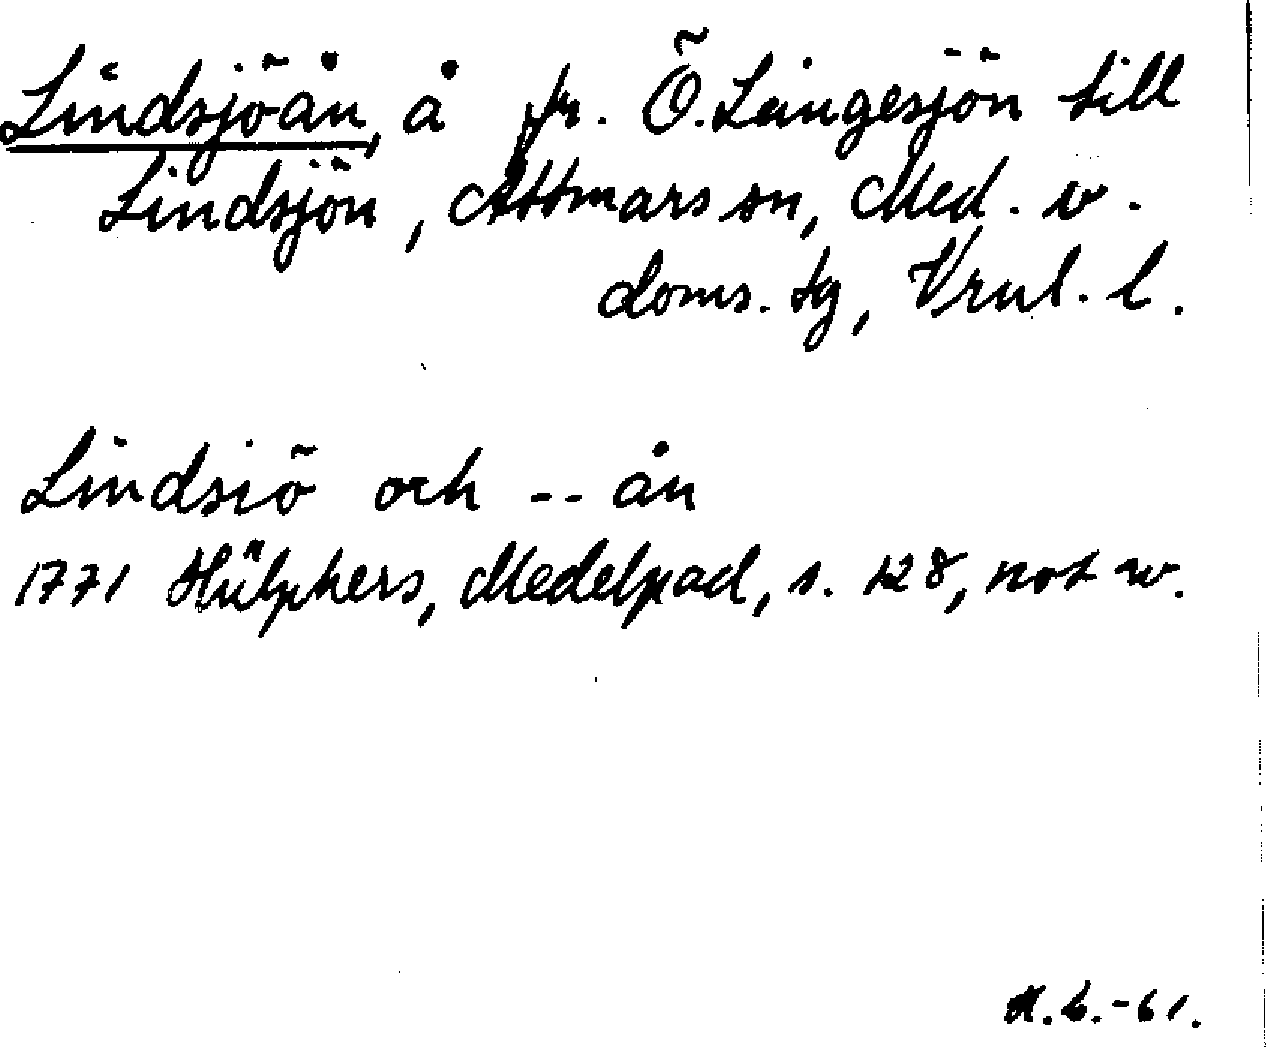 Lindsjöån, å fr. Ö. Laingesjön till
Lindsjön, Attmars sn, Med. v.
doms. tg, Vrnl. l.
Lindsiö och -- ån
1771 Hülphers, Medelpad, s. 128, not w.
M.b.-61.